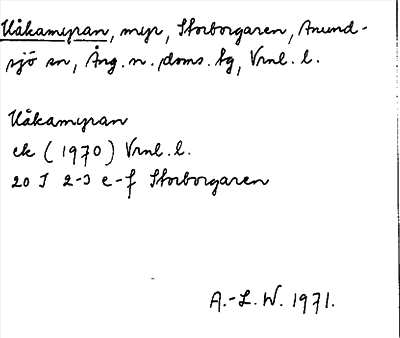 Kåkamyran, myr, Storborgaren, Anund-
sjö sn, Ång. n. doms. bg, Vrnl. l.
Kåkamyran
ek (1970) Vrnl. l.
20 J 2-3 e-f Storborgaren
A.-L. W. 1971.